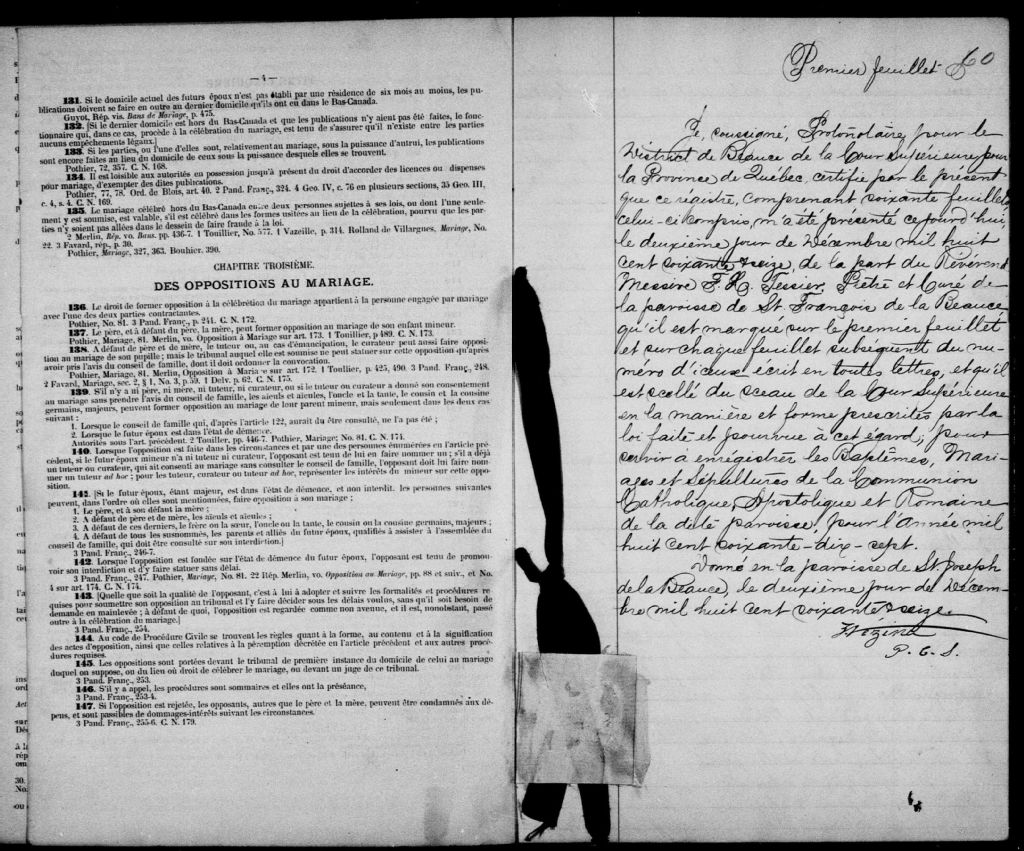 — 4 —
131. Si le domicile actuel des futurs époux n'est pas établi par une résidence de six mois au moins, les pu-
blications doivent se faire en outre au dernier domicile qu'ils ont eu dans le Bas-Canada.
Guyot, Rép. vis. Bans de Mariage, p. 475.
132. [Si le dernier domicile est hors du Bas-Canada et que les publications n'y aient pas été faites, le fonc-
tionnaire qui, dans ce cas, procède à la célébration du mariage, est tenu de s'assurer qu'il n'existe entre les parties
aucuns empêchements légaux.]
133. Si les parties, ou l'une d'elles sont, relativement au mariage, sous la puissance d'autrui, les publications
sont encore faites au lieu du domicile de ceux sous la puissance desquels elles se trouvent.
Pothier, 72, 357. C. N. 168.
134. Il est loisible aux autorités en possession jusqu'à présent du droit d'accorder des licences ou dispenses
pour mariage, d'exempter des dites publications.
Pothier, 77, 78. Ord. de Blois, art. 40. 2 Pand. Franç., 324. 4 Geo. IV, c. 76 en plusieurs sections, 35 Geo. III,
c. 4, s. 4. C. N. 169.
135. Le mariage célébré hors du Bas-Canada entre deux personnes sujettes à ses lois, ou dont l'une seule-
ment y est soumise, est valable, s'il est célébré dans les formes usitées au lieu de la célébration, pourvu que les par-
ties n'y soient pas allées dans le dessein de faire fraude à la loi.
2 Merlin, Rép. vo. Bans, pp. 436-7. 1 Touillier, No. 577. 1 Vazeille, p. 314. Rolland de Villargues, Mariage, No.
22. 3 Favard, rép., p. 30.
Pothier, Mariage, 327, 363. Bouhier. 390.
CHAPITRE TROISIÈME.
DES OPPOSITIONS AU MARIAGE.
136. Le droit de former opposition à la célébration du mariage appartient à la personne engagée par mariage
avec l'une des deux parties contractantes.
Pothier, No. 81. 3 Pand. Franç., p. 244. C. N. 172.
137. Le père, et à défaut du père, la mère, peut former opposition au mariage de son enfant mineur.
Pothier, Mariage, 81. Merlin, vo. Opposition à Mariage sur art. 173. 1 Touillier, p 489. C. N. 173.
138. A défaut de père et de mère, le tuteur ou, au cas d'émancipation, le curateur peut aussi faire opposi-
tion au mariage de son pupille; mais le tribunal auquel elle est soumise ne peut statuer sur cette opposition qu'après
avoir pris l'avis du conseil de famille, dont il doit ordonner la convocation.
Pothier, Mariage, 81. Merlin, Opposition à Mariage sur art. 172. 1 Toullier, p. 425, 490. 3 Pand. Franç., 248.
2 Favard, Mariage, sec. 2, § 1, No. 3, p. 59. 1 Delv. p. 62. C. N. 175.
139. S'il n'y a ni père, ni mère, ni tuteur, ni curateur, ou si le tuteur ou curateur a donné son consentement
au mariage sans prendre l'avis du conseil de famille, les aïeuls et aïeules, l'oncle et la tante, le cousin et la cousine
germains, majeurs, peuvent former opposition au mariage de leur parent mineur, mais seulement dans les deux cas
suivant :
1. Lorsque le conseil de famille qui, d'après l'article 122, aurait du être consulté, ne l'a pas été ;
2. Lorsque le futur époux est dans l'état de démence.
Autorités sous l'art. précédent. 2 Touiller, pp. 446-7. Pothier, Mariage; No. 81. C. N. 174.
140. Lorsque l'opposition est faite dans les circonstances et par une des personnes énumérées en l'article pré-
cédent, si le futur époux mineur n'a ni tuteur ni curateur, l'opposant est tenu de lui en faire nommer un ; s'il a déjà
un tuteur ou curateur, qui ait consenti au mariage sans consulter le conseil de famille, l'opposant doit lui faire nom-
mer un tuteur ad hoc ; pour les tuteur, curateur ou tuteur ad hoc, représenter les intérêts du mineur sur cette oppo-
sition.
141. [Si le futur époux, étant majeur, est dans l'état de démence, et non interdit, les personnes suivantes
peuvent, dans l'ordre où elles sont mentionnées, faire opposition à son mariage ;
1. Le père, et à son défaut la mère ;
2. A défaut de père et de mère, les aïeuls et aïeules ;
3. A défaut de ces derniers, le frère ou la sœur, l'oncle ou la tante, le cousin ou la cousine germains, majeurs ;
4. A défaut de tous les susnommés, les parents et alliés du futur époux, qualifiés à assister à l'assemblée du
conseil de famille, qui doit être consulté sur son interdiction.]
3 Pand. Franç., 246-7.
142. Lorsque l'opposition est fondée sur l'état de démence du futur époux, l'opposant est tenu de promou-
voir son interdiction et d'y faire statuer sans délai.
3 Pand. Franç., 247. Pothier, Mariage, No. 81. 22 Rép. Merlin, vo. Opposition au Mariage, pp. 88 et suiv., et No.
4 sur art. 174. C. N. 174.
143. [Quelle que soit la qualité de l'opposant, c'est à lui à adopter et suivre les formalités et procédures re
quises pour soumettre son opposition au tribunal et l'y faire décider sous les délais voulus, sans qu'il soit besoin de
demande en mainlevée ; à défaut de quoi, l'opposition est regardée comme non avenue, et il est, nonobstant, passé
outre à la célébration du mariage.]
3 Pand. Franç., 254.
144. Au code de Procédure Civile se trouvent les règles quant à la forme, au contenu et à la signification
des actes d'opposition, ainsi que celles relatives à la péremption décrétée en l'article précédent et aux autres procé-
dures requises.
145. Les oppositions sont portées devant le tribunal de première instance du domicile de celui au mariage
duquel on suppose, ou du lieu où droit de célébrer le mariage, ou devant un juge de ce tribunal.
3 Pand. Franç., 253.
146. S'il y a appel, les procédures sont sommaires et elles ont la préséance,
3 Pand. Franç., 253-4.
147. Si l'opposition est rejetée, les opposants, autres que le père et la mère, peuvent être condamnés aux dé-
pens, et sont passibles de dommages-intérêts suivant les circonstances.
3 Pand. Franç., 255-6. C. N. 179.
Premier feuillet 60
Je, soussigné, Protonotaire, pour le
District de Beauce de la Cour Supérieure pour
la Province de Québec, certifie par le présent
que ce régistre, comprenant soixante feuillets
celui-ci compris, m'a été présenté, cejourd'hui,
le deuxième jour de Décembre mil huit
cent soixante & seize, de la part du Révérend
Messire F. X. Tessier, Prêtre et Curé de
la paroisse de St. François de la Beauce
qu'il est marqué sur le premier feuillet
et sur chaque feuillet subséquent du nu-
méro d'iceux ecrit en toutes lettres, et qu'il
est scellé du sceau de la Cour Supérieure
en la manière et forme prescrites par la
loi faite et pourvue à cet égard; pour
servir à enrégistrer les Baptêmes, Mari-
ages et Sépultures de la Communion
Catholique, Apostolique et Romaine
de la dite paroisse, pour l'Année mil
huit cent soixante-dix-sept.
Donné en la paroisse de St. Joseph
de la Beauce, le deuxième jour de Décem-
bre mil huit cent soixante & seize.
P. C. S.